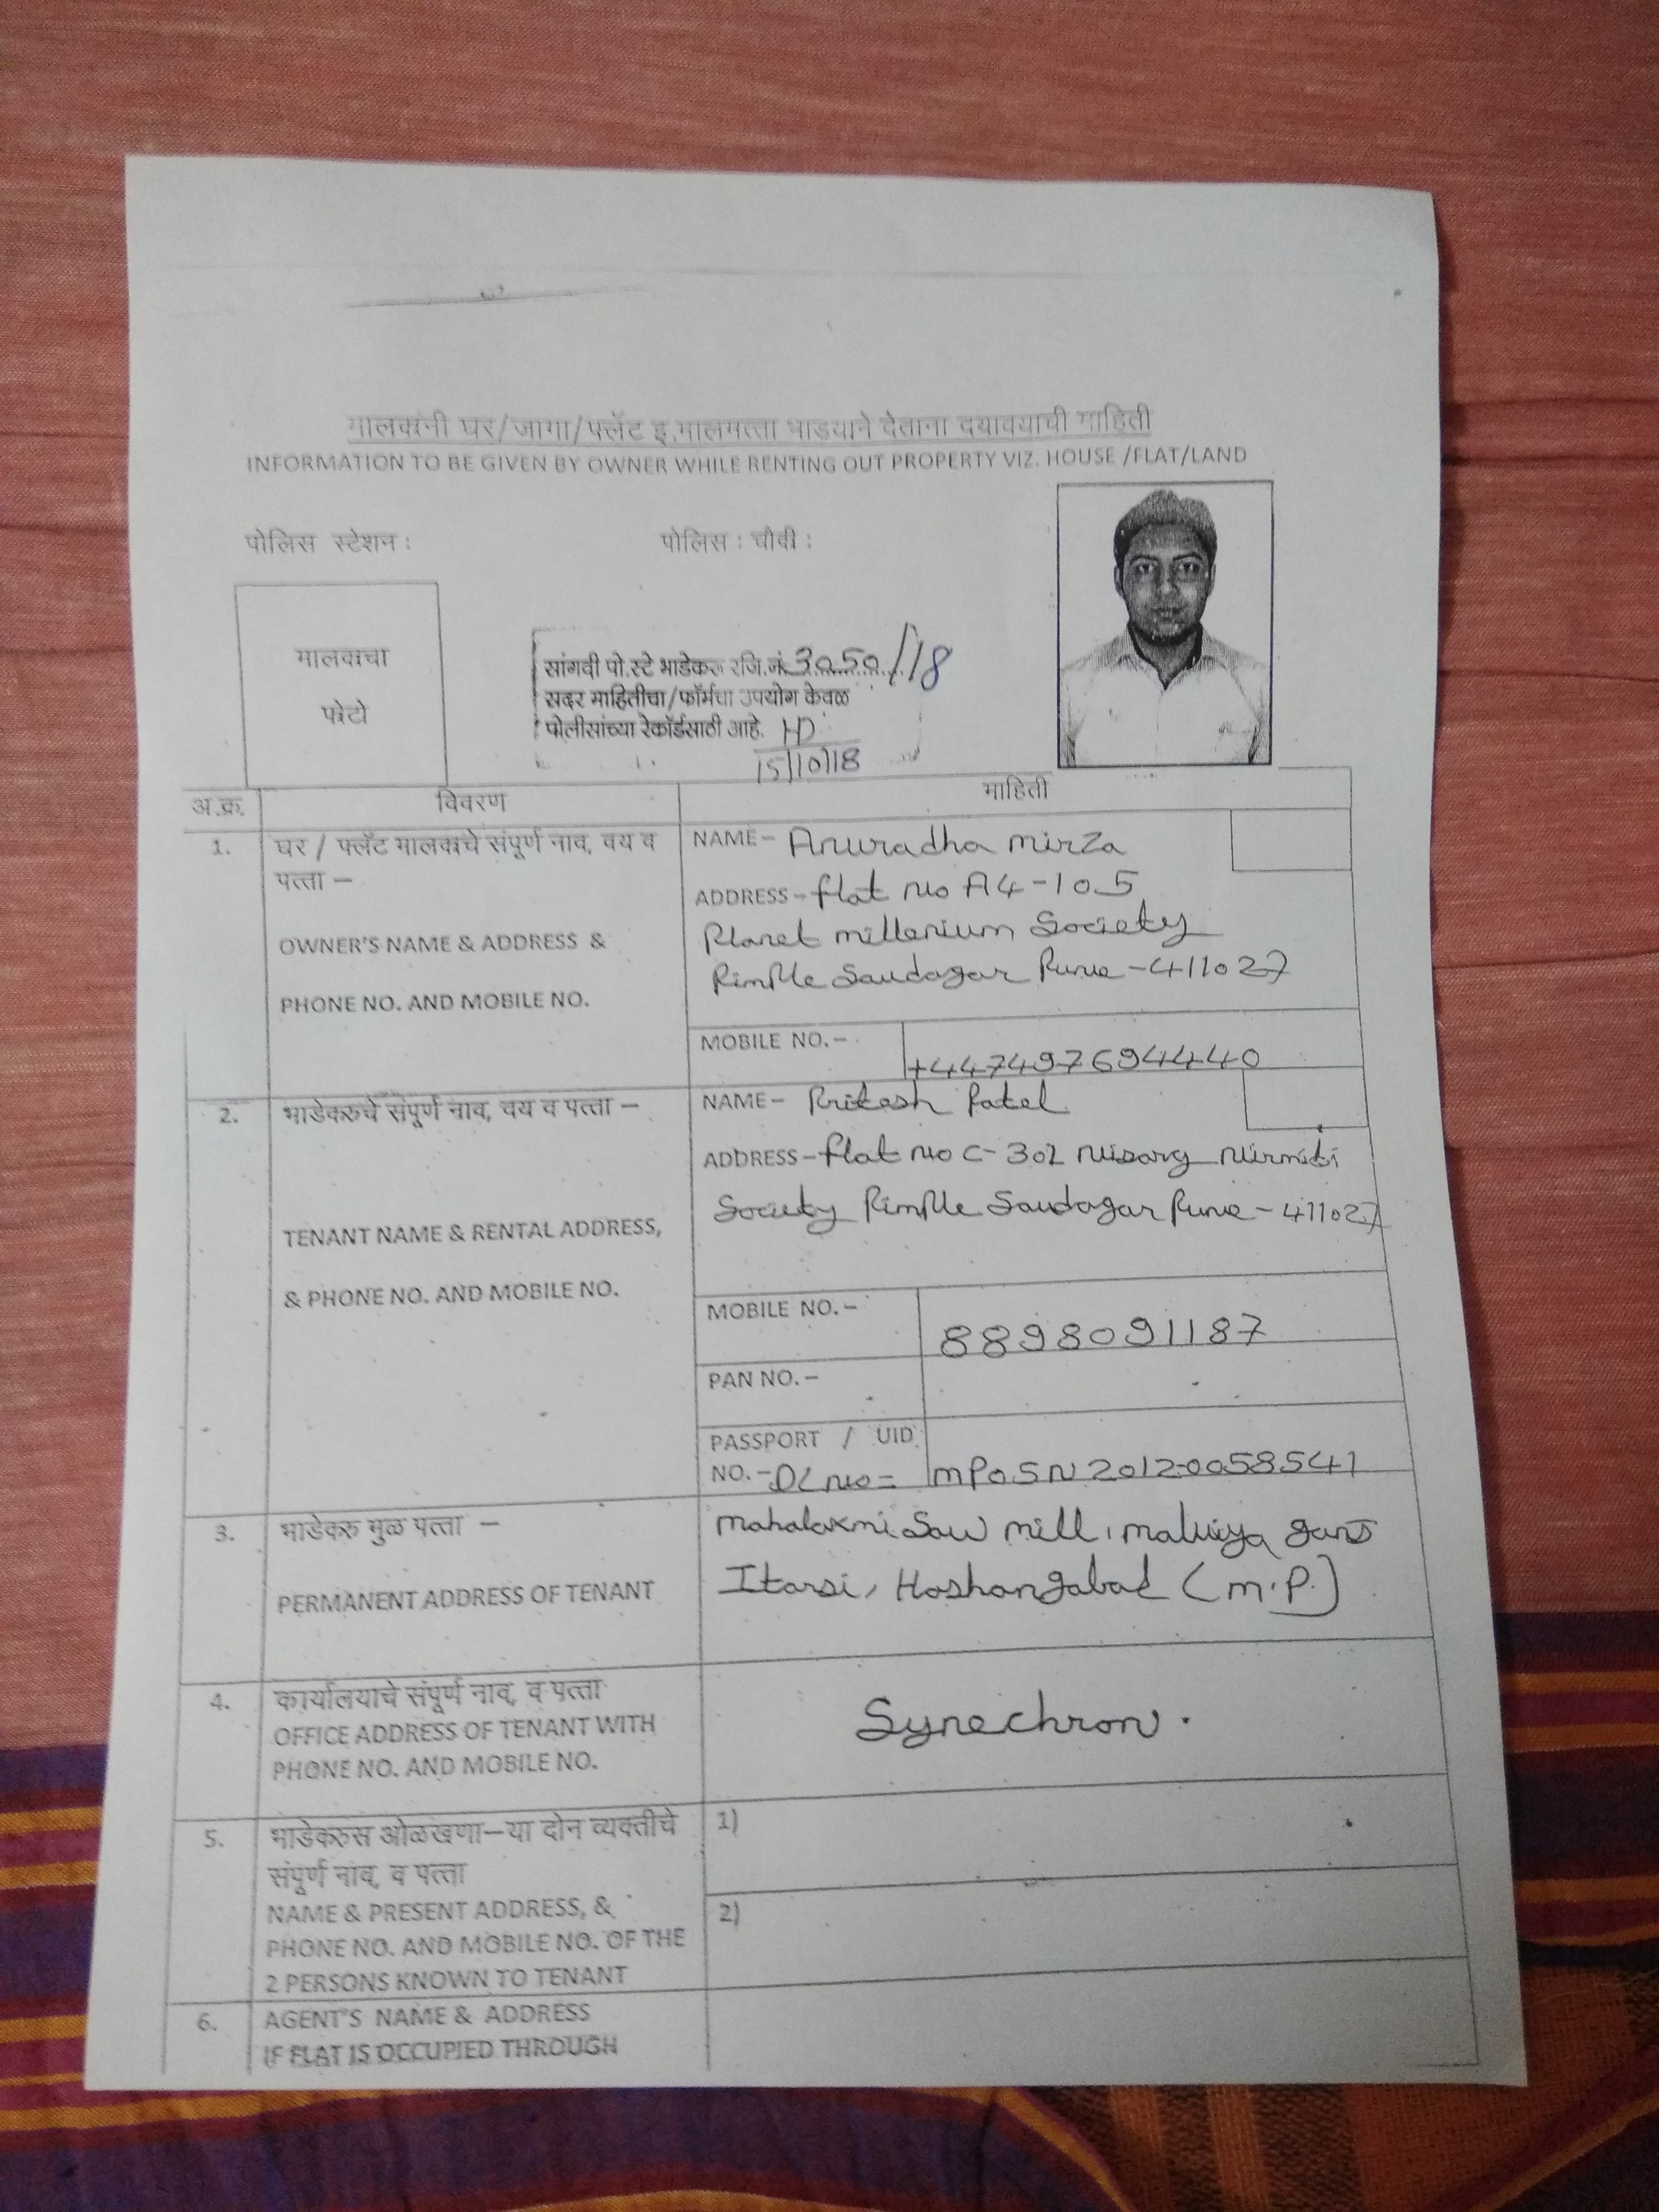 मालकांनी घर/जागा/फ्लॅट इ.मालमत्ता भाडयाने देताना दयावयाची माहिती
INFORMATION TO BE GIVEN BY OWNER WHILE RENTING OUT PROPERTY VIZ. HOUSE /FLAT/LAND
पोलिस स्टेशन : पोलिस : चौकी :
मालकाचा
फोटो
सांगवी पो.स्टे भाडेकरू रजि.नं. 3050/18
सदर माहितीचा/फॉर्मचा उपयोग केवळ
पोलीसांच्या रेकॉर्डसाठी आहे.
15/10/18
अ.क्र. विवरण माहिती
1. घर / फ्लॅट मालकाचे संपूर्ण नाव, वय व
पत्ता –
OWNER'S NAME & ADDRESS &
PHONE NO. AND MOBILE NO.
NAME – Anuradha mirza
ADDRESS – flat no A4-105
Planet millenium Society
Pimple Saudagar Pune - 411027
MOBILE NO.– +447497694440
2. भाडेकरुचे संपूर्ण नाव, वय व पत्ता –
TENANT NAME & RENTAL ADDRESS,
& PHONE NO. AND MOBILE NO.
NAME – Pritesh Patel
ADDRESS – flat no C-302 Nisarg Nirmiti
Society Pimple Saudagar Pune - 411027
MOBILE NO.– 8898091187
PAN NO.–
PASSPORT / UID
NO.– DL no = MP05N20120058541
3. भाडेकरु मुळ पत्ता –
PERMANENT ADDRESS OF TENANT
mahalaxmi Saw mill, malviya ganj
Itarsi, Hoshangabad (m.P.)
4. कार्यालयाचे संपूर्ण नाव, व पत्ता
OFFICE ADDRESS OF TENANT WITH
PHONE NO. AND MOBILE NO.
Synechron.
5. भाडेकरुस ओळखणा–या दोन व्यक्तीचे
संपूर्ण नाव, व पत्ता
NAME & PRESENT ADDRESS, &
PHONE NO. AND MOBILE NO. OF THE
2 PERSONS KNOWN TO TENANT
1)
2)
6. AGENT'S NAME & ADDRESS
IF FLAT IS OCCUPIED THROUGH